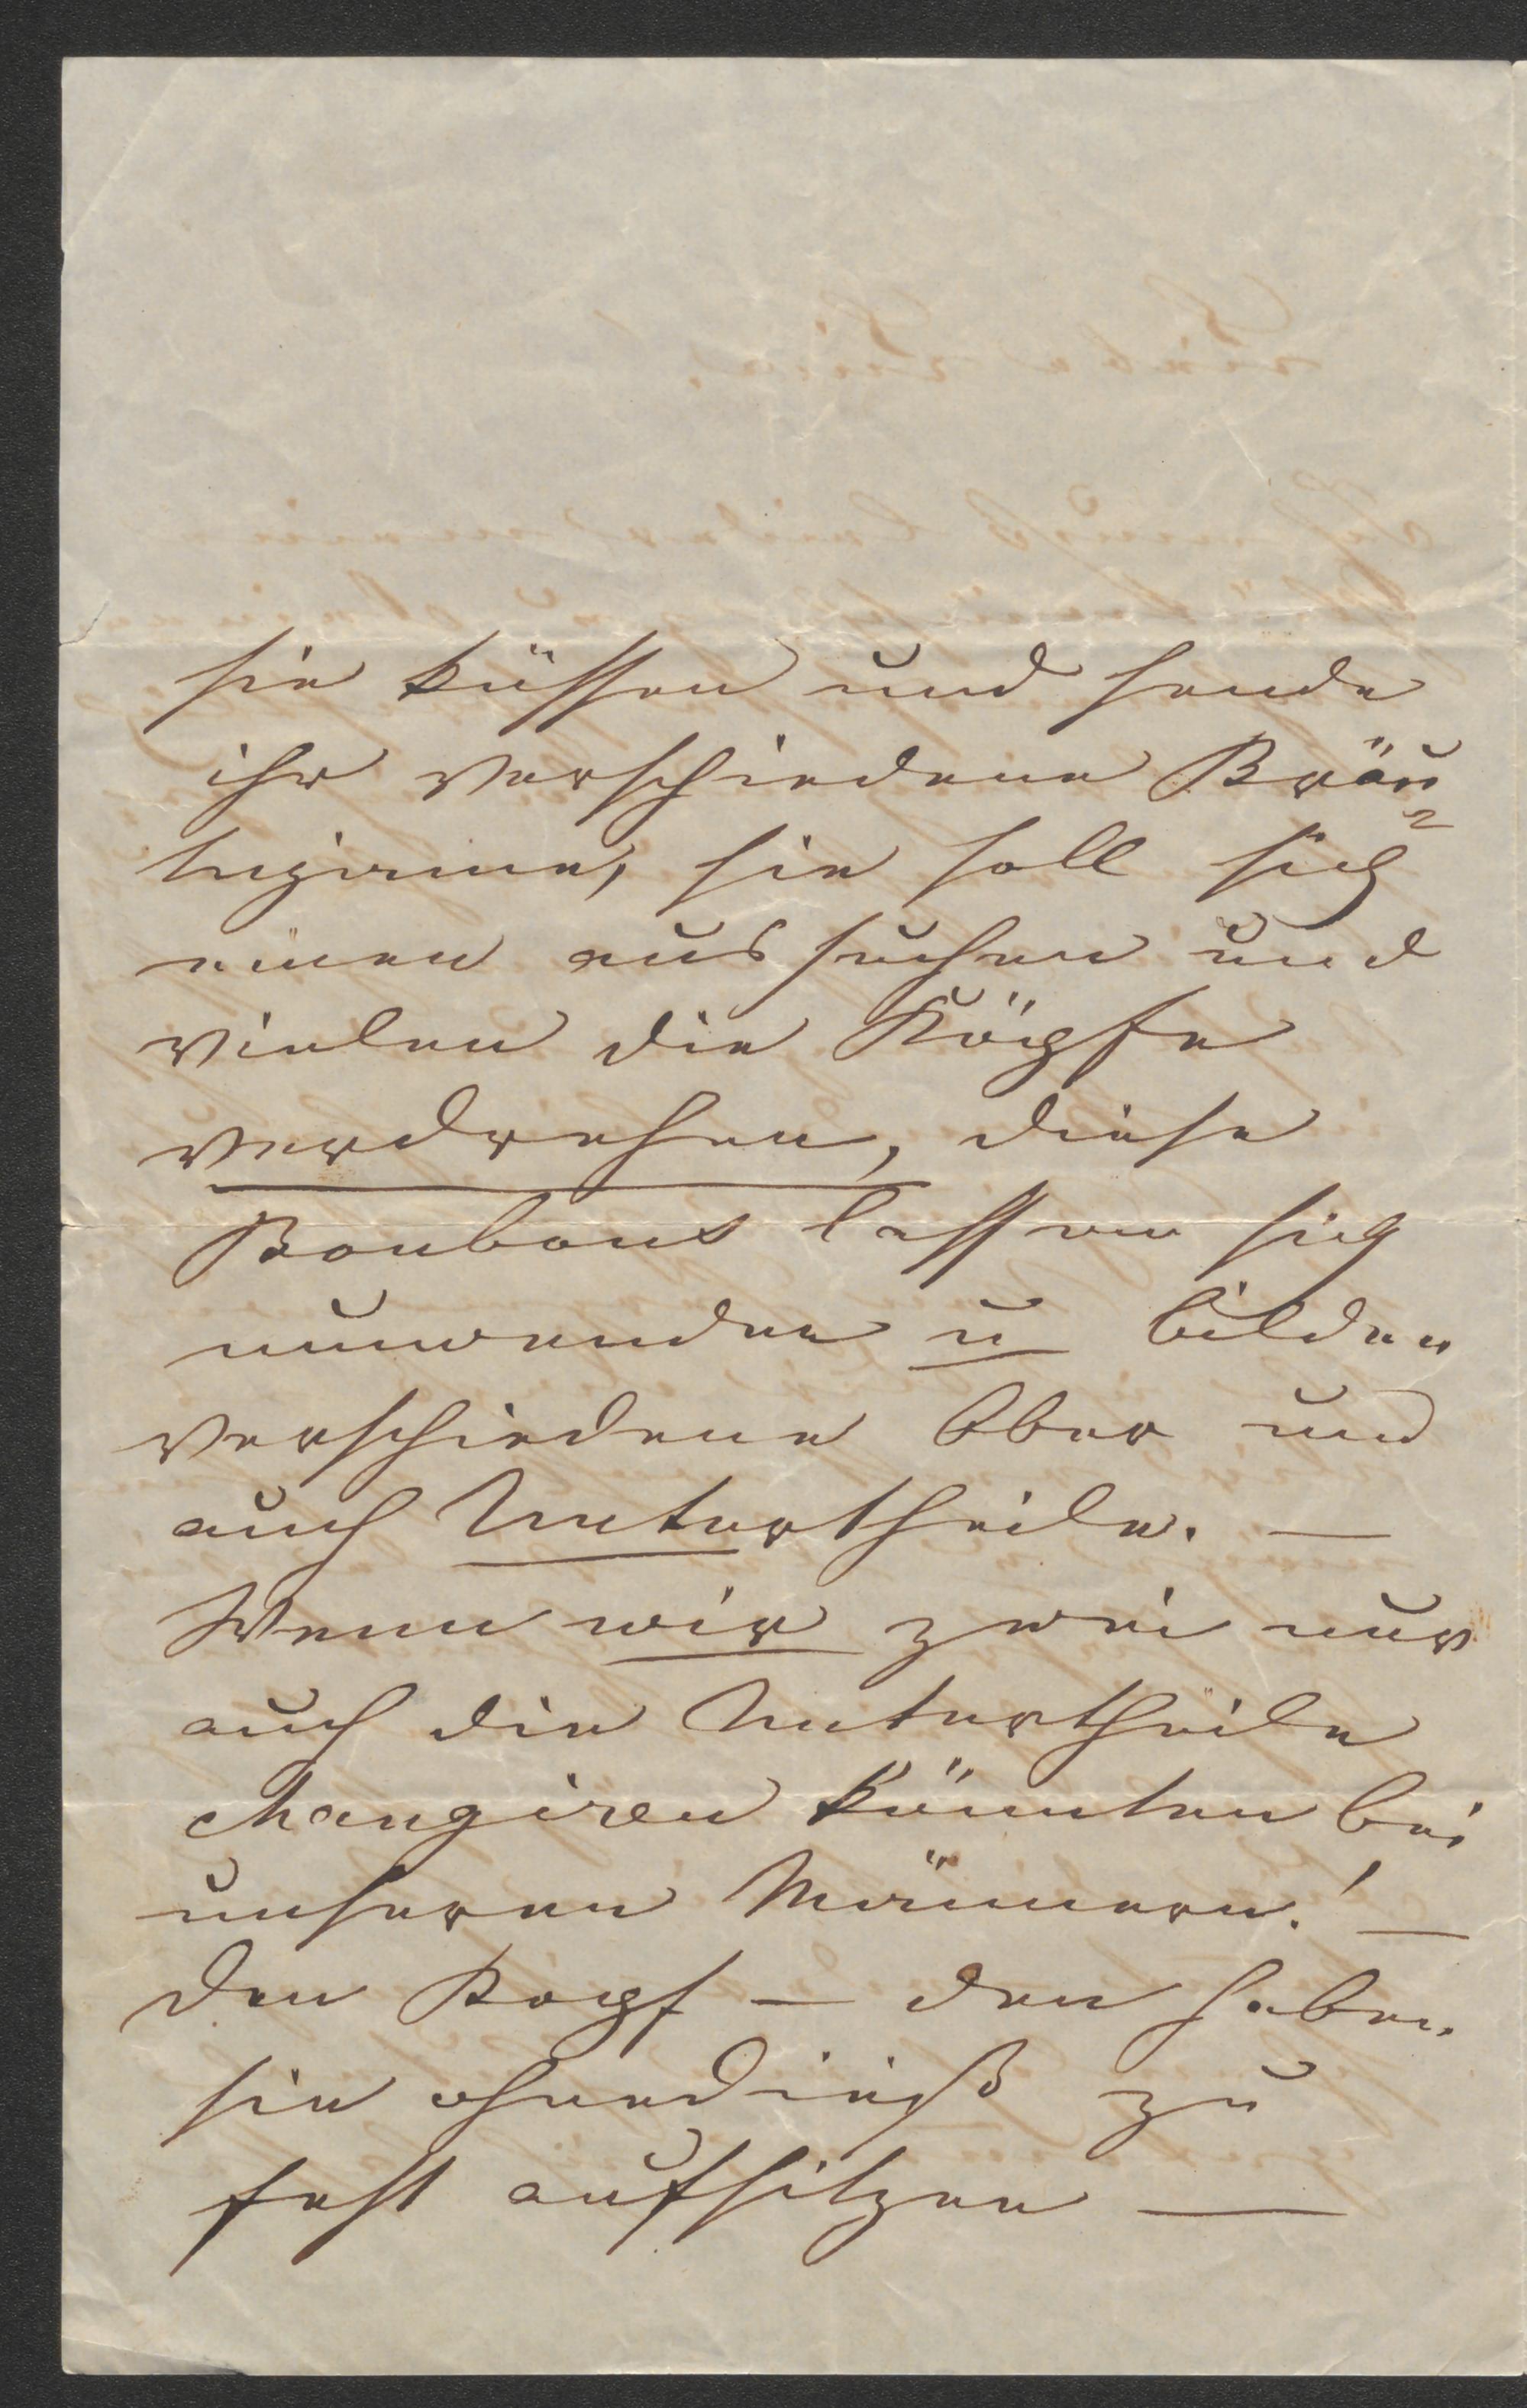 sie küssen und sende
ihr verschiedene Bräu=
tigame, sie soll sich
einen aussuchen und
vielen die Köpfe
verdrehen, diese
Bonbons lassen sich
umwenden u bilden
verschiedene Ober und
auch Untertheile. —
Wenn wir zwei nur
auch die Untertheile
changiren könnten bei
unseren Männern! —
den Kopf — den haben
sie ohnedieß zu
fest aufsitzen —